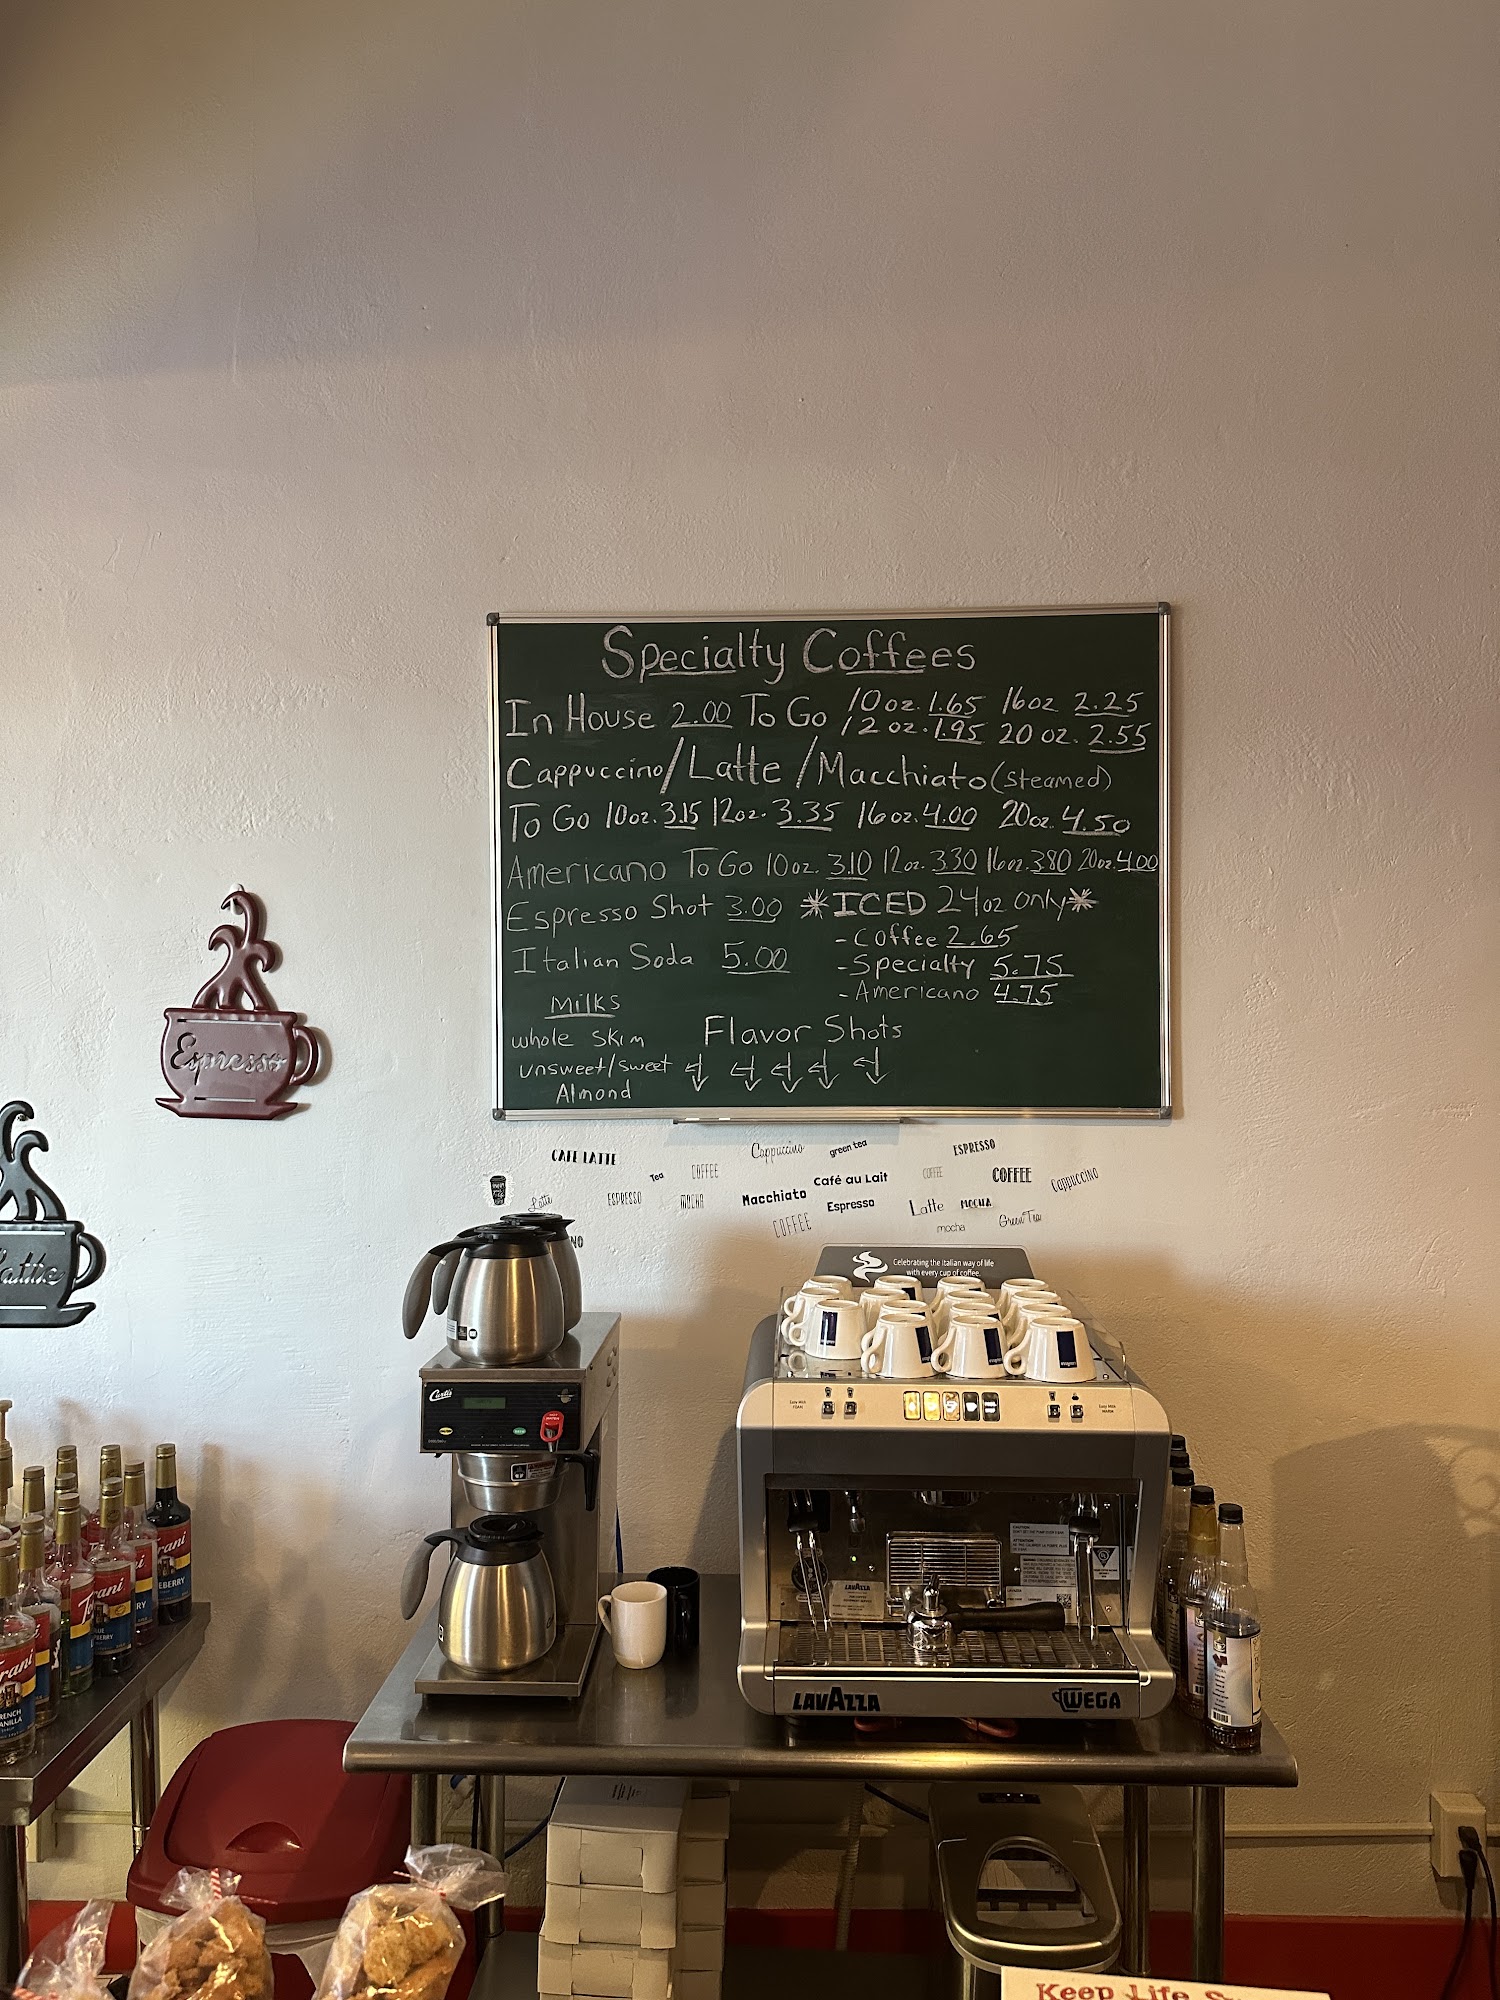 Specialty Coffees
In House 2.00 To Go 10oz. 1.65 16oz 2.25
12oz. 1.95 20oz. 2.55
Cappuccino/Latte/Macchiato (steamed)
To Go 10oz. 3.15 12oz. 3.35 16oz. 4.00 20oz. 4.50
Americano To Go 10oz. 3.10 12oz. 3.30 16oz. 3.80 20oz. 4.00
Espresso Shot 3.00 *ICED 24oz only*
- Coffee 2.65
Italian Soda 5.00
- Specialty 5.75
- Americano 4.75
Milks
whole skim
unsweet/sweet
Almond
Flavor Shots
Espresso
Latte
CAFE LATTE
Cappuccino
green tea
ESPRESSO
Tea
COFFEE
Café au Lait
COFFEE
COFFEE
Cappuccino
Latte
ESPRESSO
MOCHA
Macchiato
Espresso
Latte
MOCHA
COFFEE
mocha
Green Tea
NO
Celebrating the Italian way of life
with every cup of coffee.
Curtis
LAVAZZA
LAVAZZA
WEGA
CAUTION
ATTENTION
Torani
FRENCH
VANILLA
Keep Life